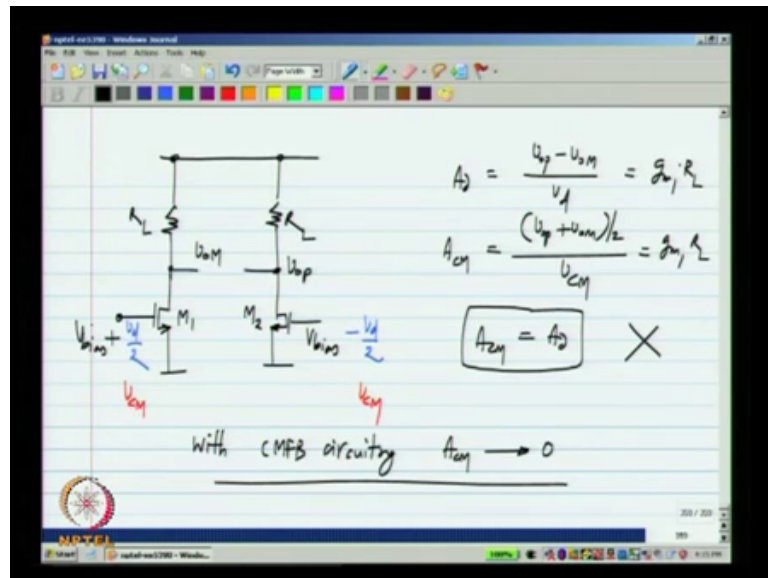 nptel-ee5390 - Windows Journal
File Edit View Insert Actions Tools Help
Page Width
B I
R_L
R_L
V_oM
V_op
M_1
M_2
V_bias + V_d/2
V_bias - V_d/2
V_CM
V_CM
A_d = (V_op - V_oM) / V_d = g_m1 R_L
A_CM = ((V_op + V_oM)/2) / V_CM = g_m1 R_L
A_CM = A_d
With CMFB circuitry A_CM → 0
NPTEL
Start
nptel-ee5390 - Windo...
100%
4:15 PM